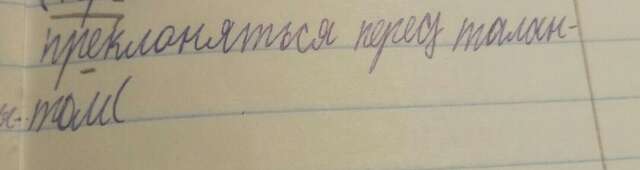 преклоняться перед талан-
том(